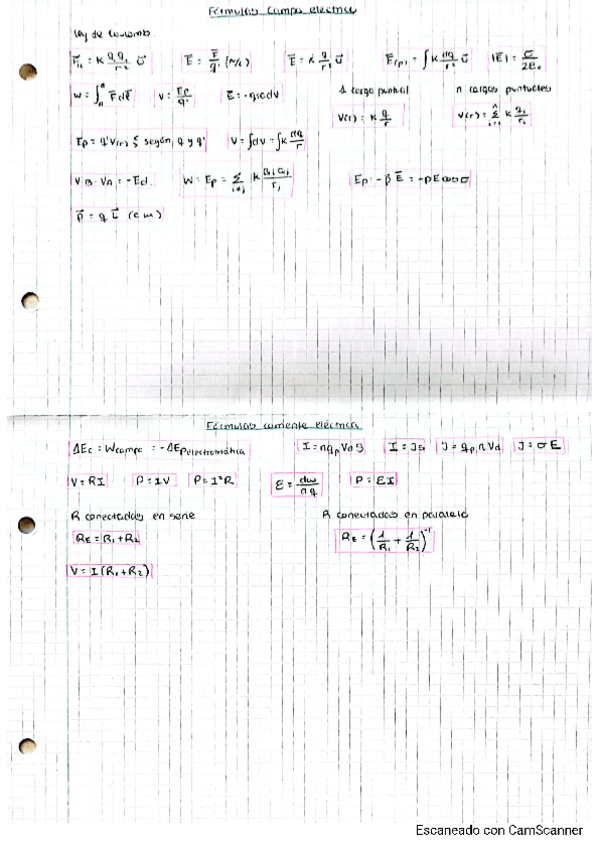 Fórmulas campo eléctrico
Ley de Coulomb
F⃗₁₂ = K q q₁/r² U⃗    E⃗ = F⃗/q' (N/C)    E⃗ = K q/r² U⃗    E⃗(p) = ∫ K dq/r² U⃗    |E⃗| = σ/2ε₀
W = ∫ F⃗ dl⃗    V = Ep/q'    E⃗ = -grad V    1 carga puntual    n cargas puntuales
V(r) = K q/r    V(r) = Σ K qᵢ/rᵢ
Ep = q'V(r) según q y q'    V = ∫dV = ∫K dq/r
VB - VA = -Ed    W = Ep = Σ K qᵢ qⱼ/rⱼ    Ep = -p⃗ E⃗ = -pE cos σ
p⃗ = q L⃗ (C m)
Fórmulas corriente eléctrica
ΔEc = Wcampo = -ΔEpelectrostática    I = nqpVdS    I = JS    J = qpnVd    J = σE
V = RI    P = IV    P = I²R    ε = dw/dq    P = εI
R conectadas en serie    R conectadas en paralelo
RE = R₁ + R₂    RE = (1/R₁ + 1/R₂)⁻¹
V = I(R₁ + R₂)
Escaneado con CamScanner